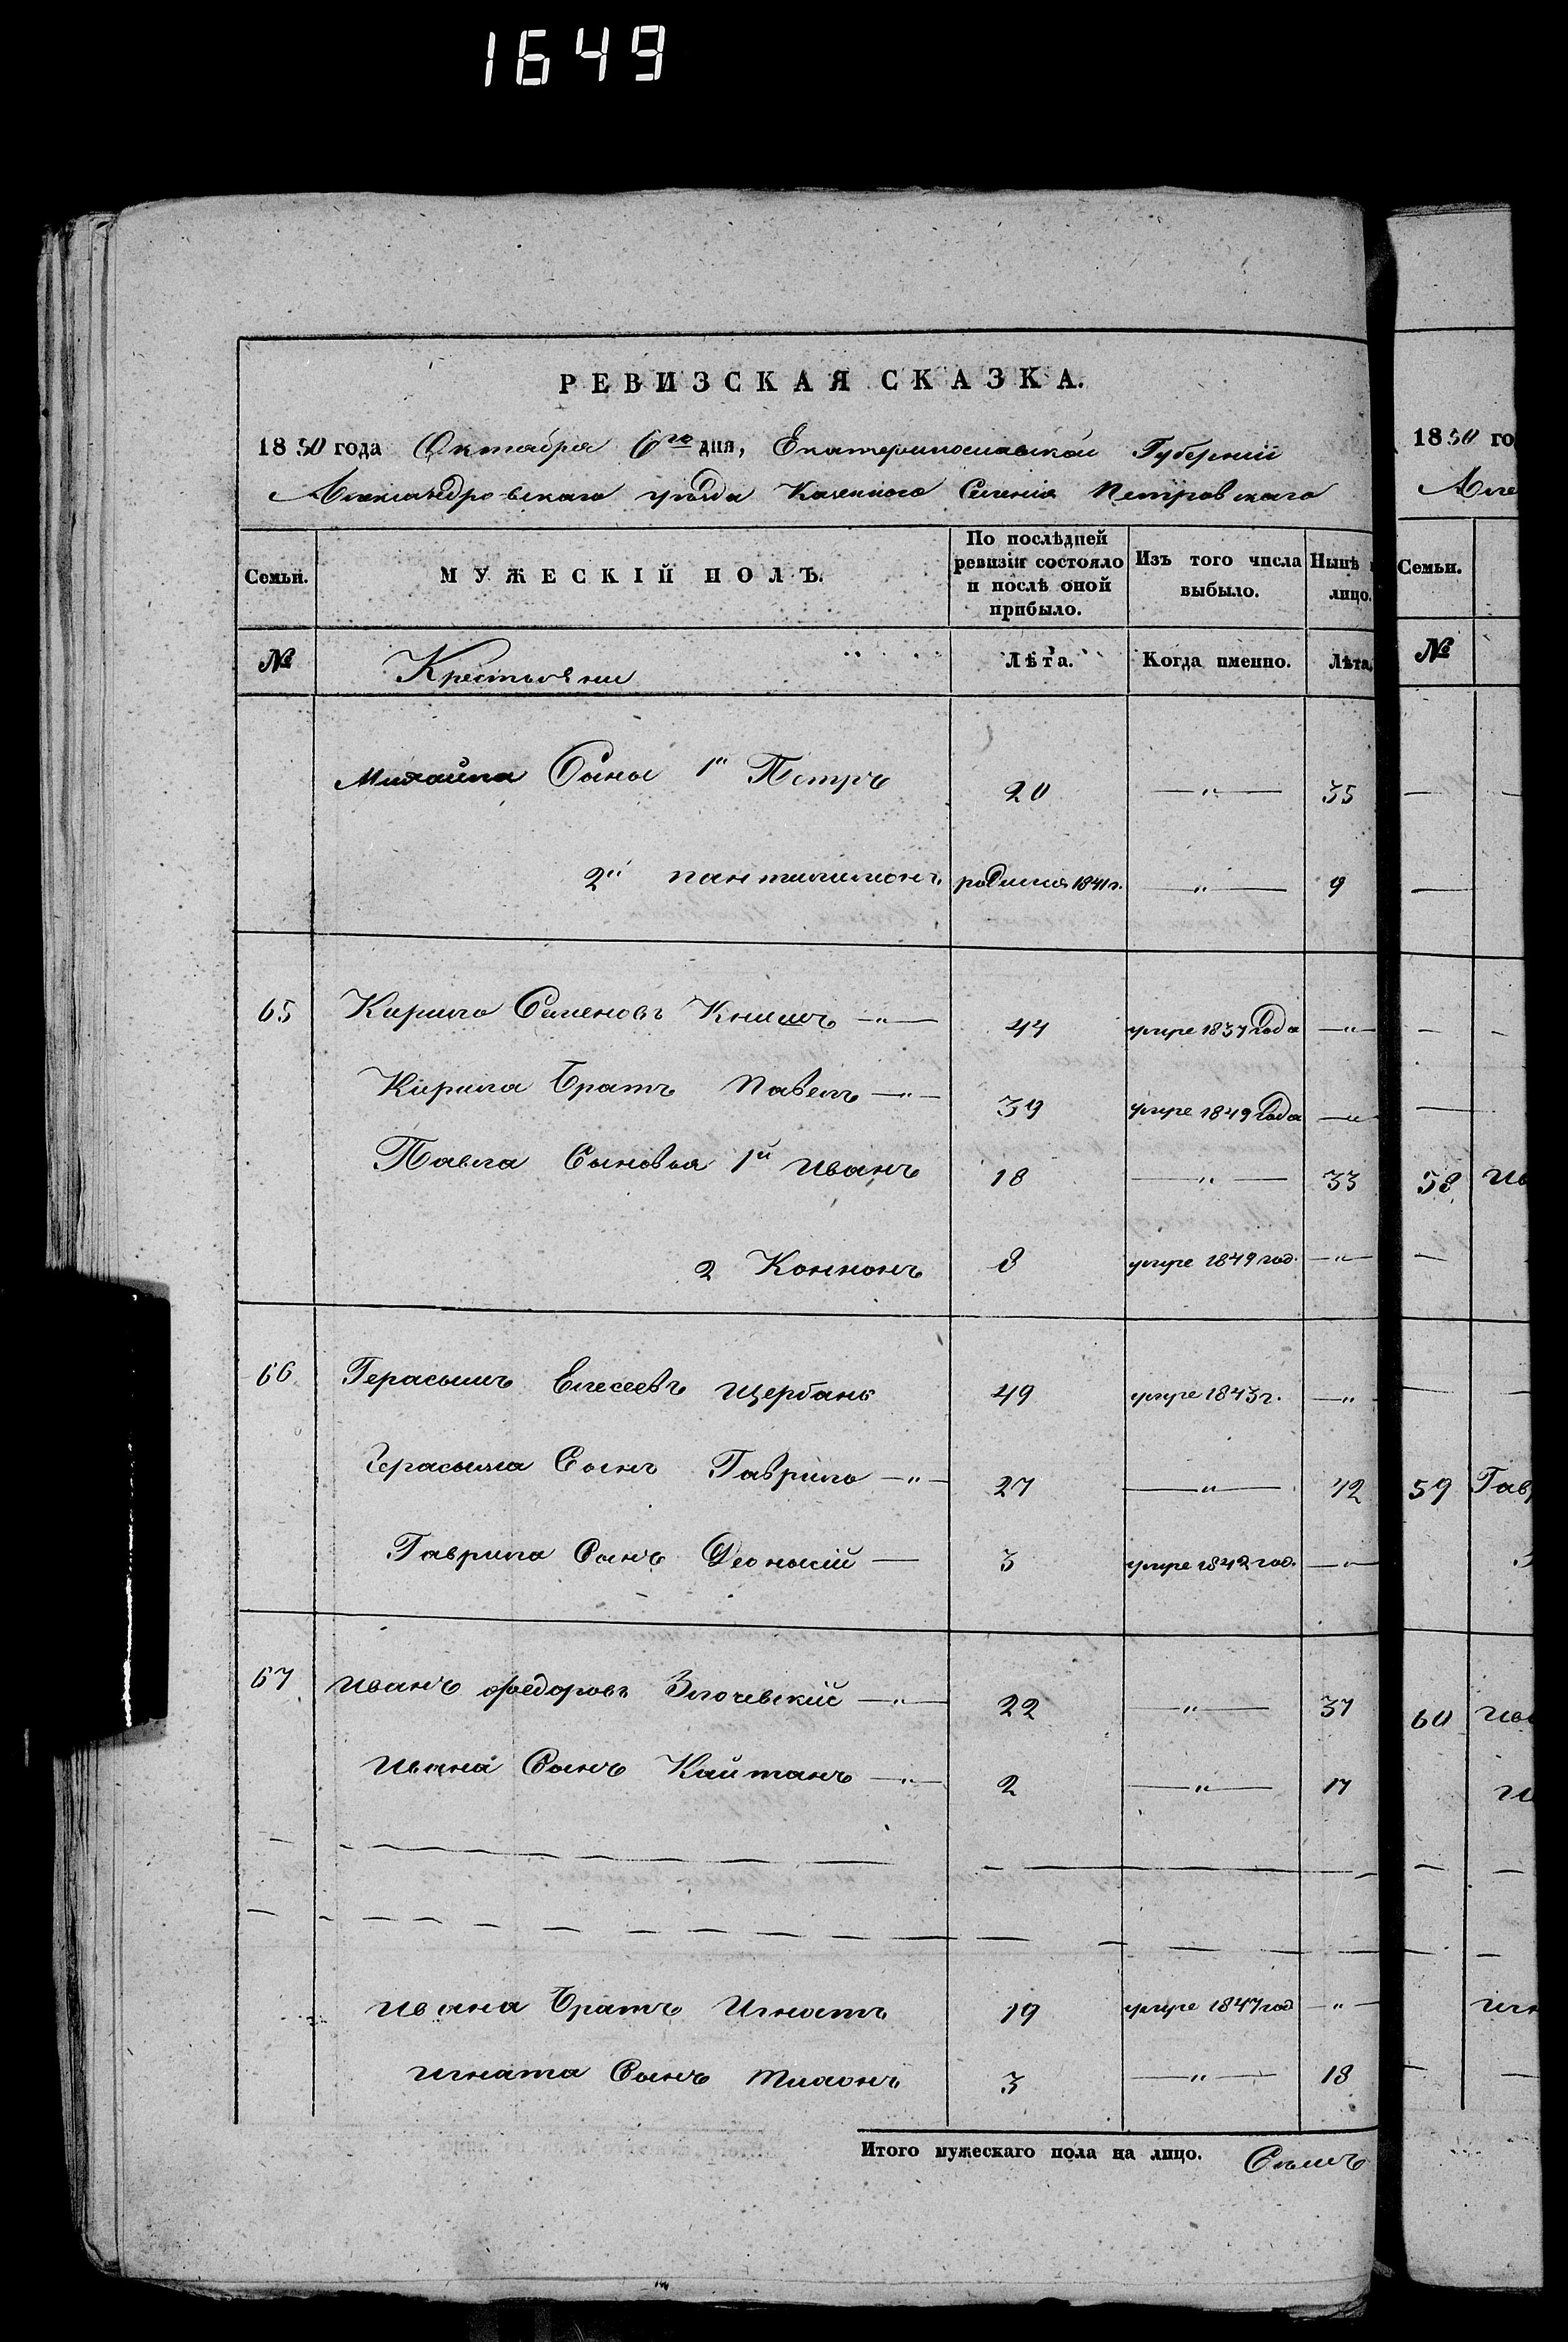 1649
РЕВИЗСКАЯ СКАЗКА.
1850 года Октября 6го дня, Екатеринославской Губернии
Александровскаго уѣзда Казеннаго Селенія Петровскаго
Семьи. МУЖЕСКІЙ ПОЛЪ. По послѣдней ревизіи состояло и послѣ оной прибыло. Изъ того числа выбыло. Нынѣ лицо.
№ Крестьяни Лѣта. Когда именно. Лѣта.
Михайла Сыны 1й Петръ 20 —"— 35
2й пантилимонъ родился 1841 г. —"— 9
65 Кирило Семеновъ Книшъ —"— 44 умре 1837 Года —"—
Кирила Братъ Павелъ —"— 39 умре 1849 Года —"—
Павла Сыновья 1й Иванъ 18 —"— 33
2 Коннонъ 8 умре 1849 год. —"—
66 Герасымъ Елесеевъ Щербань 49 умре 1843 г. —"
Герасыма Сынъ Гаврило —"— 27 —"— 42
Гаврила Сынъ Деонисій — 3 умре 1842 год. —"—
67 Иванъ Федоровъ Злочевскій —"— 22 —"— 37
Ивана Сынъ Кайтанъ —"— 2 —"— 17
Ивана Братъ Игнатъ 19 умре 1847 год —"—
Игната Сынъ Тихонъ 3 —"— 18
Итого мужескаго пола на лицо. Семь
1850 го
Але
Семьи.
№
58 Ив
59 Гав
60 Ива
И
Игн